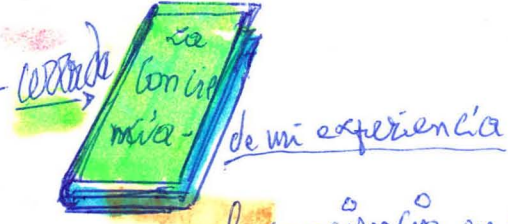 - cerrada
La
Concie
mía -
de mi experiencia